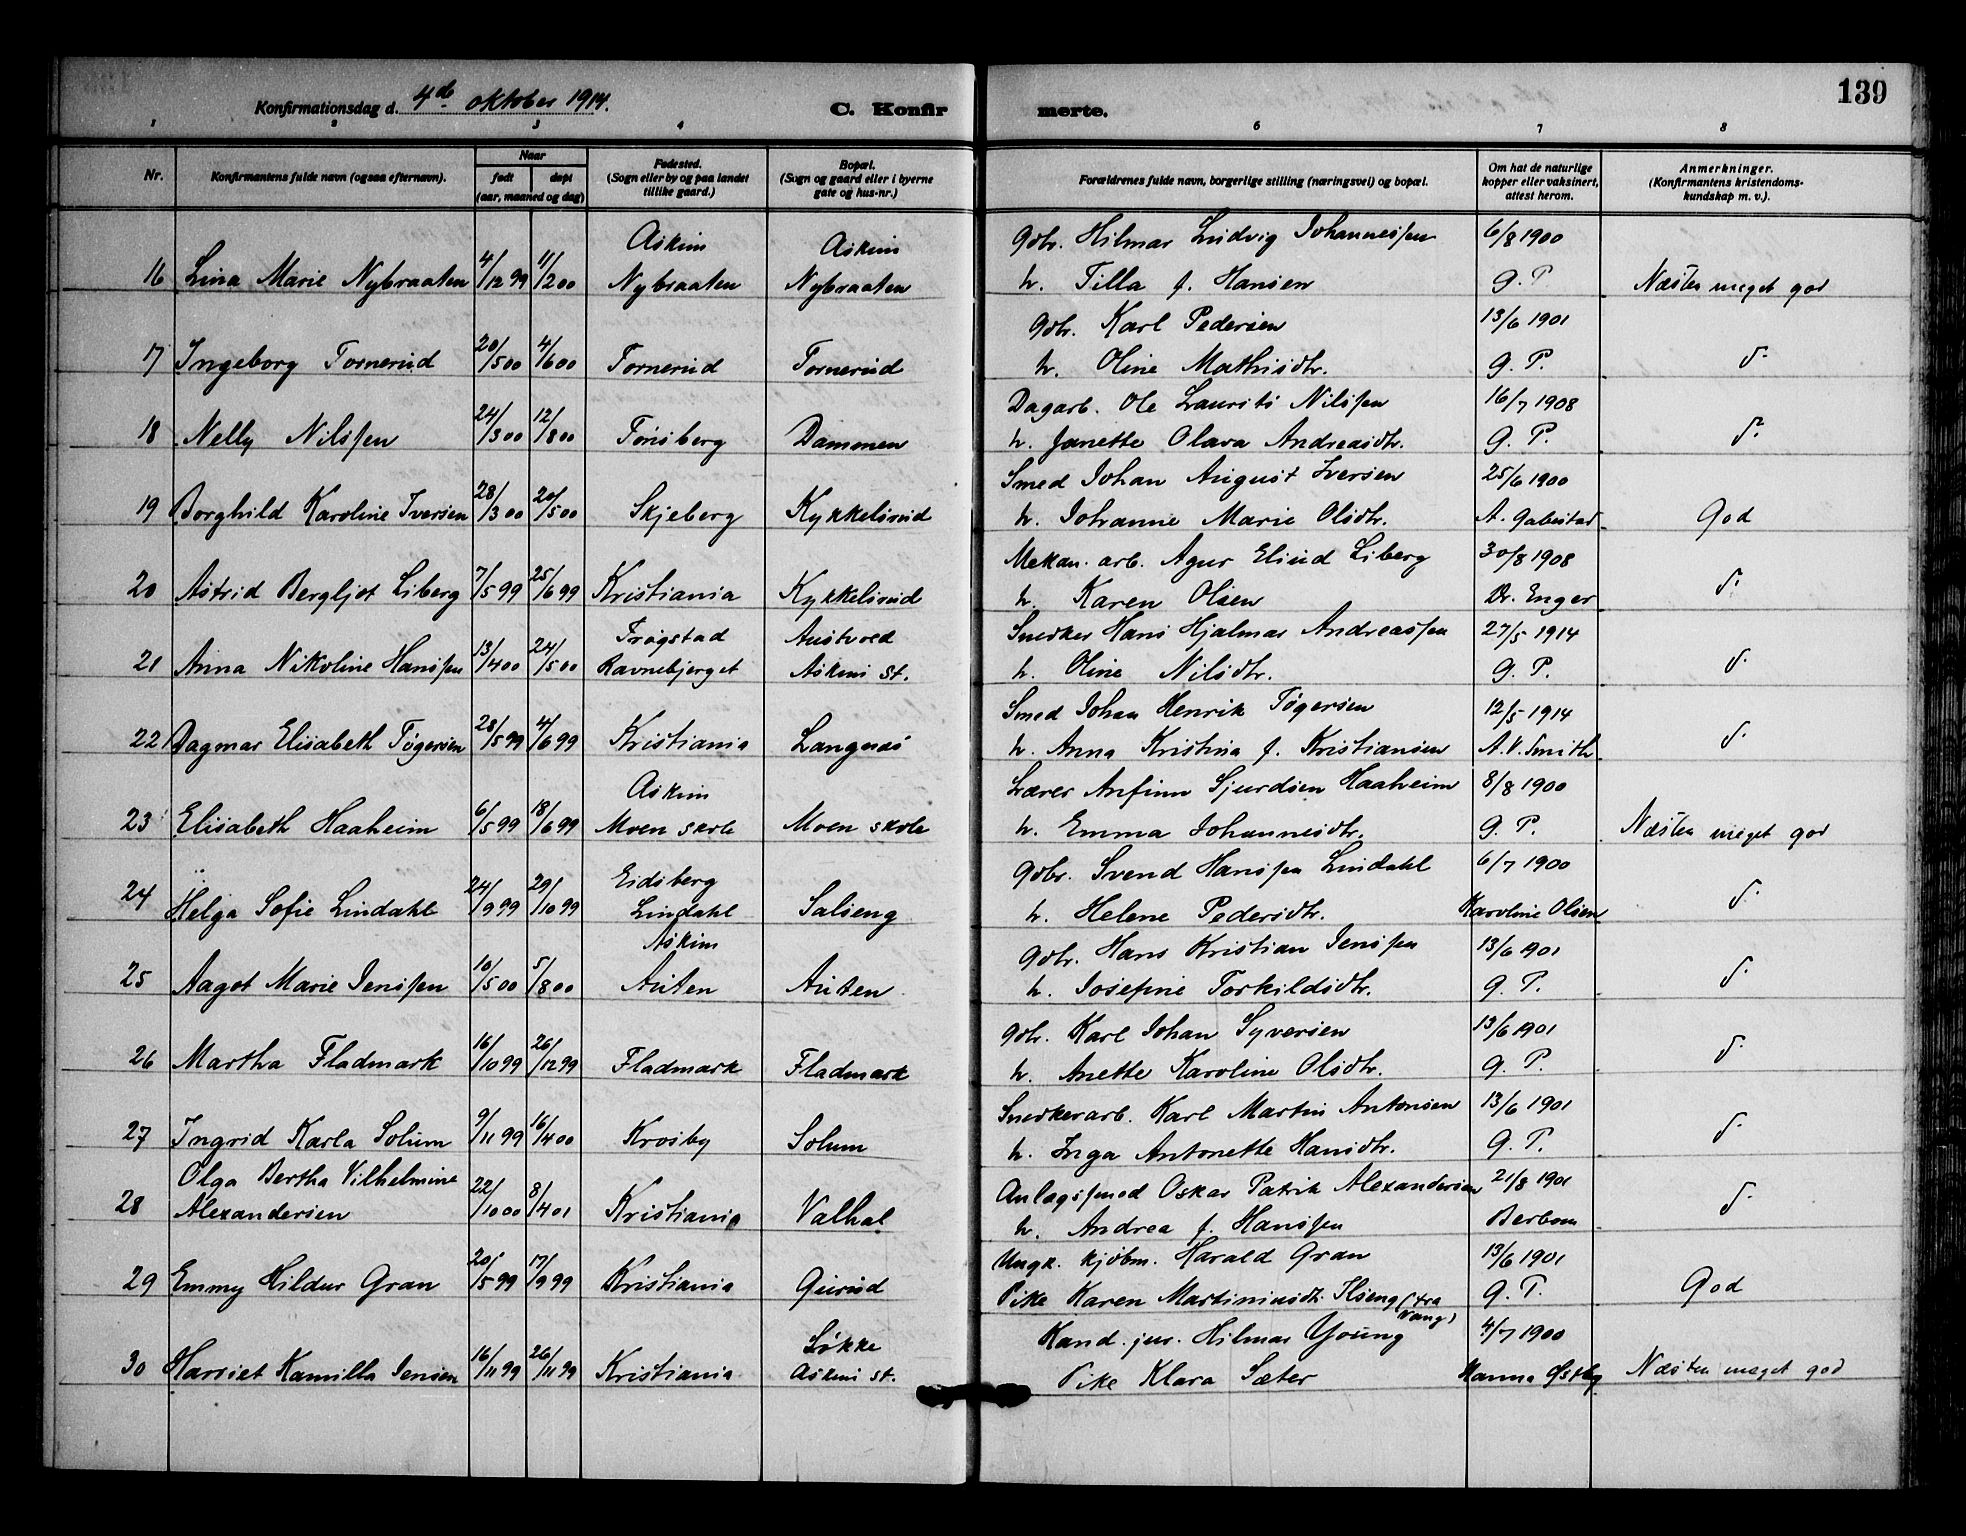 139
Konfirmationsdag d. 4de oktober 1914.
C. Konfirmerte.
1 2 3 4 6 7 8
Nr.
Konfirmantens fulde navn (ogsaa efternavn).
Naar
født døpt
(aar, maaned og dag)
Fødested.
(Sogn eller by og paa landet
tillike gaard.)
Bopæl.
(Sogn og gaard eller i byerne
gate og hus-nr.)
Forældrenes fulde navn, borgerlige stilling (næringsvei) og bopæl.
Om hat de naturlige
kopper eller vaksinert,
attest herom.
Anmerkninger.
(Konfirmantens kristendoms-
kundskap m. v.).
Askim Askim Gbr. Hilmar Ludvig Johannesſen 6/8 1900
16 Lina Marie Nybraaten 4/12 99 11/2 00 Nybraaten Nybraaten h. Tilla f. Hansen G. P. Næsten meget god
Gbr. Karl Pedersen 13/6 1901
17 Ingeborg Tornerud 20/5 00 4/6 00 Tornerud Tornerud h. Oline Mathisdtr. G. P. d.
Dagarb. Ole Laurits Nilsſen 16/7 1908
18 Nelly Nilsſen 24/3 00 12/8 00 Tønsberg Dammen h. Janette Olava Andreasdtr. G. P. d.
Smed Johan August Iversen 25/6 1900
19 Borghild Karoline Iversen 28/3 00 20/5 00 Skjeberg Kykkelsrud h. Johanne Marie Olsdtr. A. Gabestad God
Mekan. arb. Agur Eliud Liberg 30/8 1908
20 Astrid Bergljot Liberg 7/5 99 25/6 99 Kristiania Kykkelsrud h. Karen Olsen Dr. Enger d.
Frøgstad Austved Snedker Hans Hjalmar Andreasſen 27/5 1914
21 Anna Nikoline Hansſen 13/4 00 24/5 00 Ravnebjerget Askim st. h. Oline Nilsdtr. G. P. d.
Smed Johan Henrik Tøgersen 12/5 1914
22 Dagmar Elisabeth Tøgersen 28/5 99 4/6 99 Kristiania Langnæs h. Anna Kristina f. Kristiansen A. V. Smith d.
Askim Lærer Anfinn Sjurdsen Haaheim 8/8 1900
23 Elisabeth Haaheim 6/5 99 18/6 99 Moen skole Moen skole h. Emma Johannesdtr. G. P. Næsten meget god
Eidsberg Gbr. Svend Hansſen Lindahl 6/7 1900
24 Helga Sofie Lindahl 24/9 99 29/10 99 Lindahl Salseng h. Helene Pedersdtr. Karoline Olsen d.
Askim Gbr. Hans Kristian Jensſen 13/6 1901
25 Aagot Marie Jensſen 10/5 00 5/8 00 Auten Auten h. Josefine Torkildsdtr. G. P. d.
Gbr. Karl Johan Syversen 13/6 1901
26 Martha Fladmark 16/10 99 26/12 99 Fladmark Fladmark h. Anette Karoline Olsdtr. G. P. d.
Snedkerarb. Karl Martin Antonsen 13/6 1901
27 Ingrid Karla Solum 9/11 99 16/4 00 Krosby Solum h. Inga Antonette Hansdtr. G. P. d.
Olga Bertha Vilhelmine Anlagsſmed Oskar Patrik Alexandersen 21/8 1901
28 Alexandersen 22/10 00 8/4 01 Kristiania Valhal h. Andrea f. Hansſen Berbom d.
Ungk. kjøbm. Harald Gran 13/6 1901
29 Emmy Hildur Gran 20/5 99 17/9 99 Kristiania Gurud Pike Karen Martiniusdt. Ilseng (fra Vang) G. P. God
Løkke Kand. jur. Hilmar Young 4/7 1900
30 Harriet Kamilla Jensen 16/11 99 26/11 99 Kristiania Askim st. Pike Klara Sæter Hanna Østby Næsten meget god